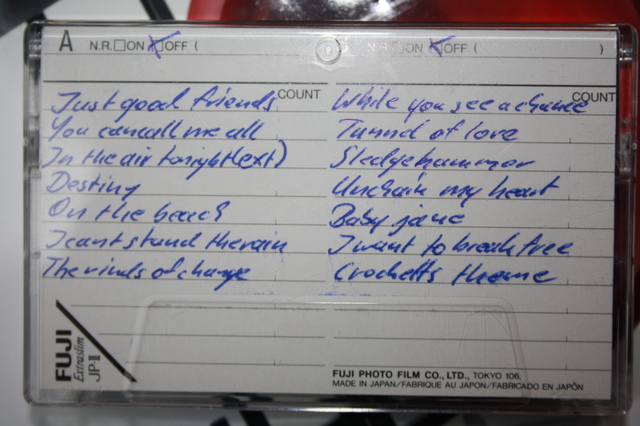 A N.R. ON OFF ( N.R. ON OFF ( )
COUNT COUNT
Just good friends
You can call me all
In the air tonight (ext)
Destiny
On the beach
I cant stand the rain
The winds of change
While you see a chance
Tunnel of love
Sledgehammer
Unchain my heart
Baby jane
I want to break free
Crocketts theme
FUJI
Extraslim
JP-II
FUJI PHOTO FILM CO., LTD., TOKYO 106,
MADE IN JAPAN/FABRIQUE AU JAPON/FABRICADO EN JAPÓN